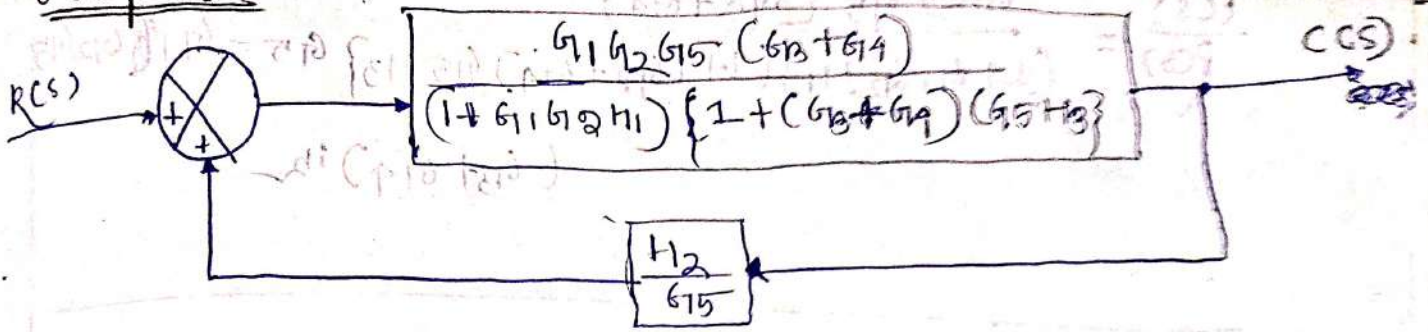 R(S)
+
+
G1 G2 G5 (G3 + G4)
(1 + G1 G2 H1) {1 + (G3 + G4) (G5 H3}
C(S)
H2
G5